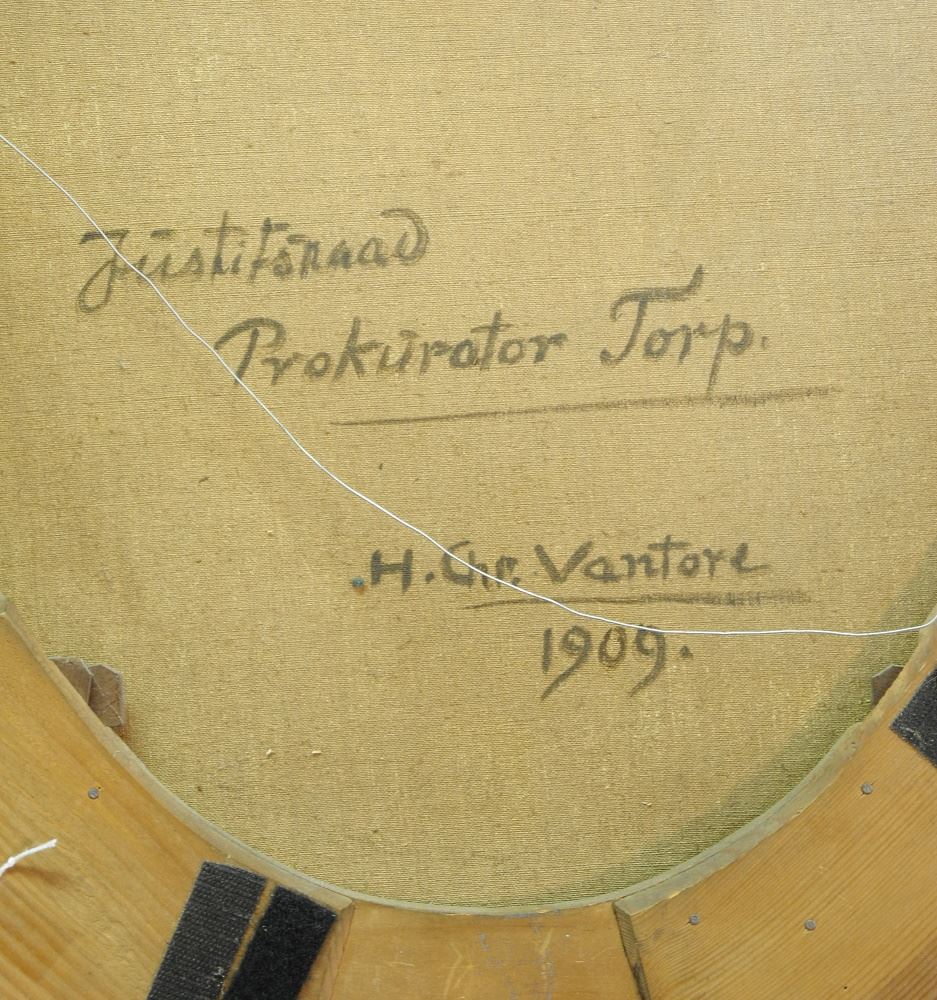 Justitsraad
Prokurator Torp.
H. Chr. Vantore
1909.